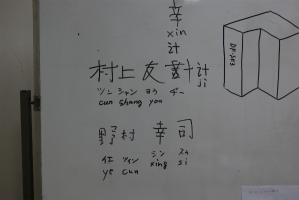 辛
xin
計
村上友計計
ji
ツン シャン ヨウ チー
cun shang you
野村 幸司
イエ ツゥン シン スゥ
ye cun xing si